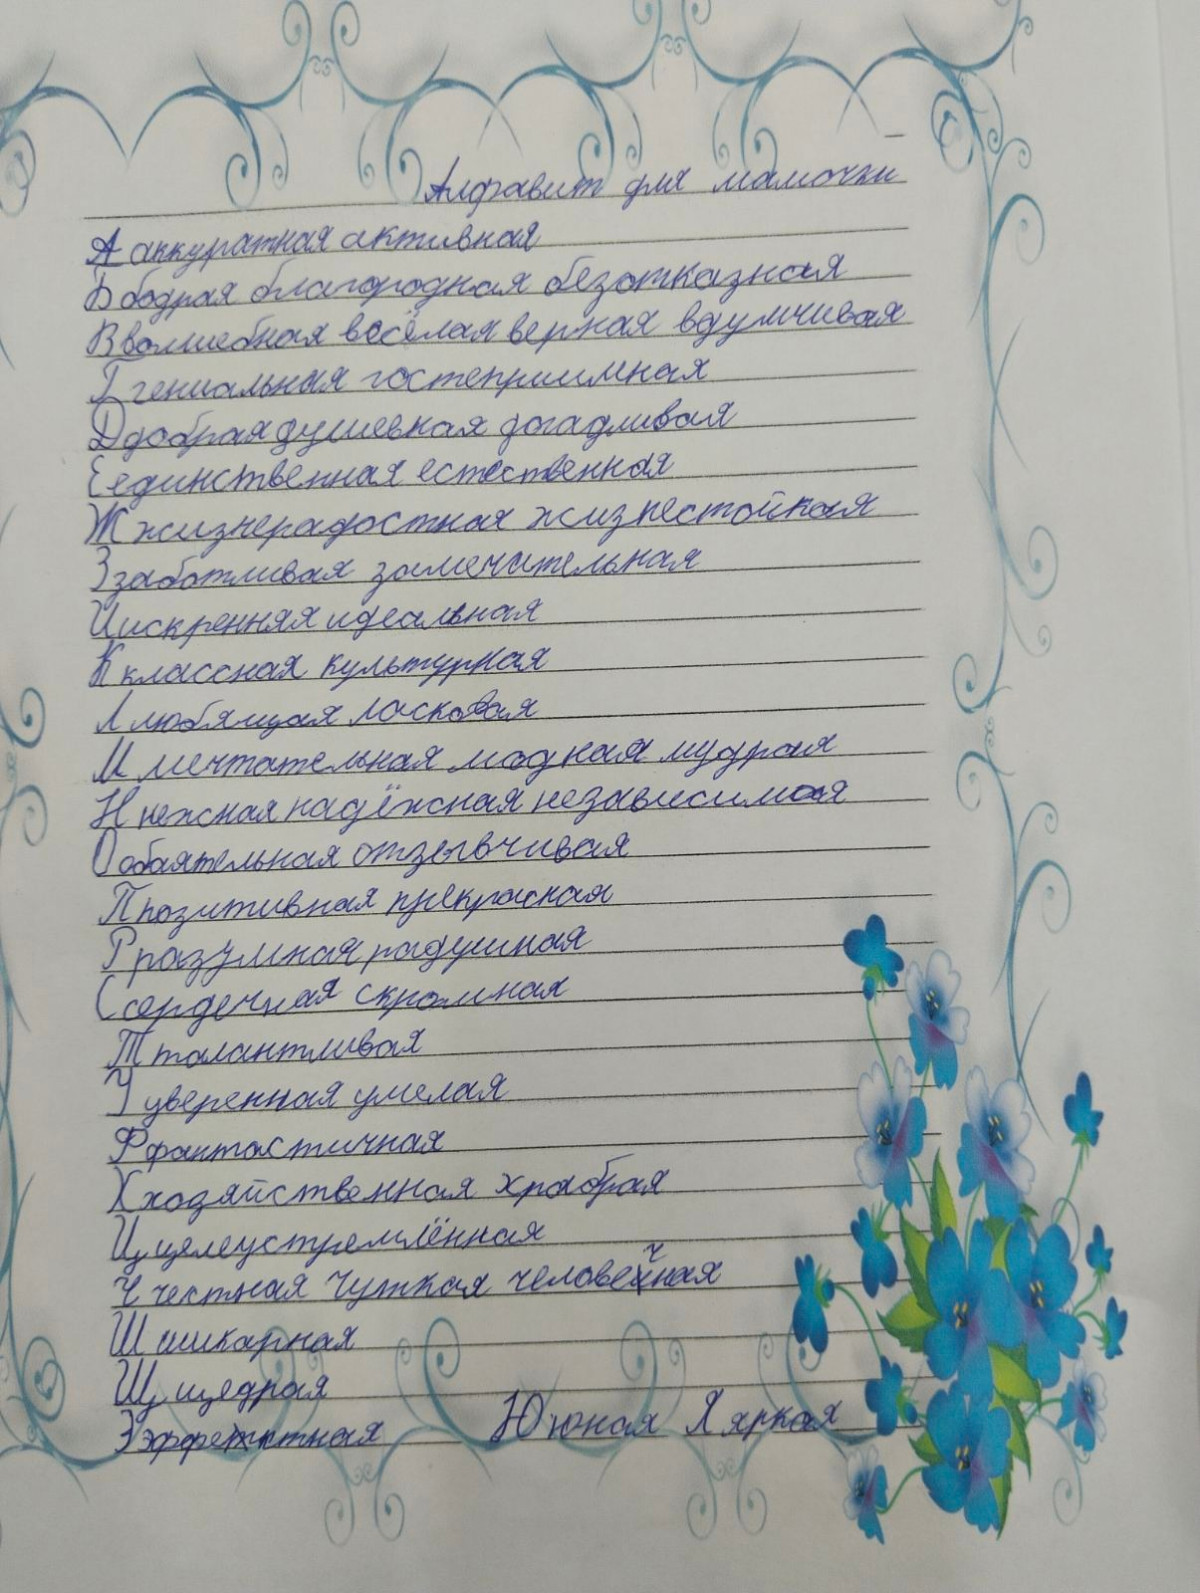 Алфавит для мамочки
А аккуратная активная
Б бодрая благородная безотказная
В волшебная весёлая верная вдумчивая
Г гениальная гостеприимная
Д добрая душевная догадливая
Е единственная естественная
Ж жизнерадостная жизнестойкая
З заботливая замечательная
И искренняя идеальная
К классная культурная
Л любящая ласковая
М мечтательная модная мудрая
Н нежная надёжная независимая
О обаятельная отзывчивая
П позитивная прекрасная
Р разумная радушная
С сердечная скромная
Т талантливая
У уверенная умелая
Ф фантастичная
Х хозяйственная храбрая
Ц целеустремлённая
Ч честная чуткая человечная
Ш шикарная
Щ щедрая
Э эффектная Ю юная Я яркая